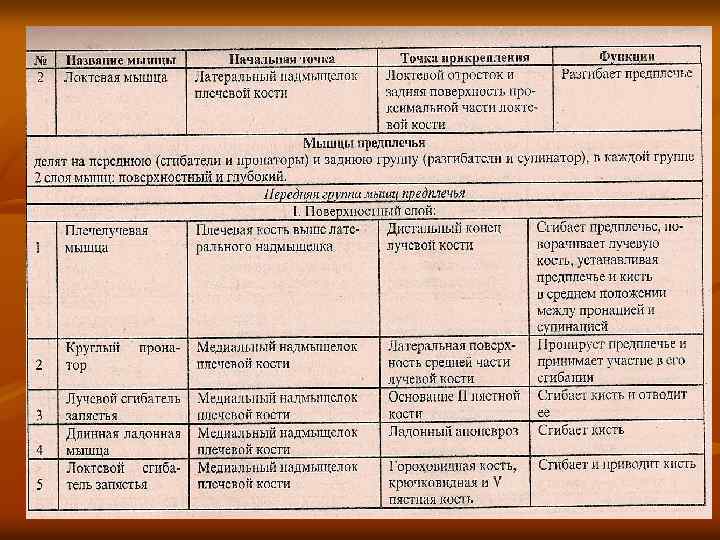 № Название мышцы Начальная точка Точка прикрепления Функции
2 Локтевая мышца Латеральный надмыщелок Локтевой отросток и Разгибает предплечье
плечевой кости задняя поверхность про-
ксимальной части локте-
вой кости
Мышцы предплечья
делят на переднюю (сгибатели и пронаторы) и заднюю группу (разгибатели и супинатор), в каждой группе
2 слоя мышц: поверхностный и глубокий.
Передняя группа мышц предплечья
1. Поверхностный слой:
1 Плечелучевая мышца Плечевая кость выше лате- Дистальный конец Сгибает предплечье, по-
рального надмыщелка лучевой кости ворачивает лучевую
кость, устанавливая
предплечье и кисть
в среднем положении
между пронацией и
супинацией
2 Круглый прона- Медиальный надмыщелок Латеральная поверх- Пронирует предплечье и
тор плечевой кости ность средней части принимает участие в его
лучевой кости сгибании
3 Лучевой сгибатель Медиальный надмыщелок Основание II пястной Сгибает кисть и отводит
запястья плечевой кости кости ее
4 Длинная ладонная Медиальный надмыщелок Ладонный апоневроз Сгибает кисть
мышца плечевой кости
5 Локтевой сгиба- Медиальный надмыщелок Гороховидная кость, Сгибает и приводит кисть
тель запястья плечевой кости крючковидная и V
пястная кость